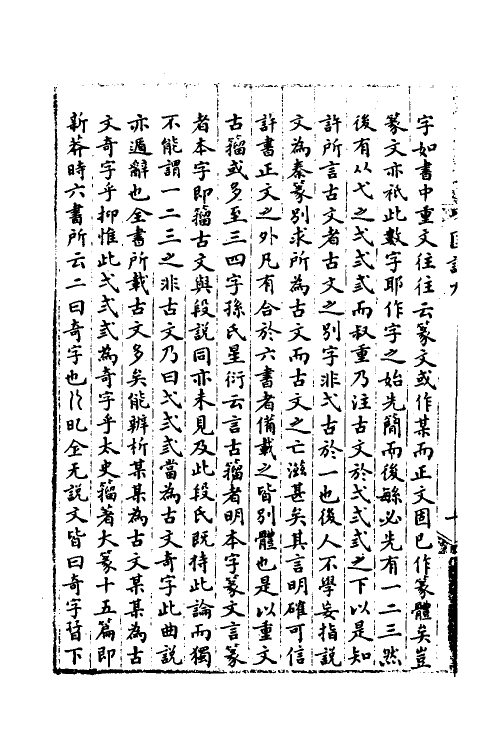 字如書中重文往往云篆文或作某而正文固已作篆體矣豈
篆文亦祇此數字耶作字之始先簡而後緐必先有一二三然
後有从弋之弌弍弎而叔重乃注古文於弌弍弎之下以是知
許所言古文者古文之別字非弌古於一也後人不學妄指說
文為秦篆別求所為古文而古文之亡滋甚矣其言明確可信
許書正文之外凡有合於六書者備載之皆別體也是以重文
古籀或多至三四字孫氏星衍云言古籀者明本字篆文言篆
者本字即籀古文與段說同亦未見及此段氏既持此論而獨
不能謂一二三之非古文乃曰弌弍弎當為古文奇字此曲說
亦遁辭也全書所載古文多矣能辨析某某為古文某某為古
文奇字乎抑惟此弌弍弎為奇字乎太史籀著大篆十五篇即
新莽時六書所云二曰奇字也
仝无說文皆曰奇字晉下